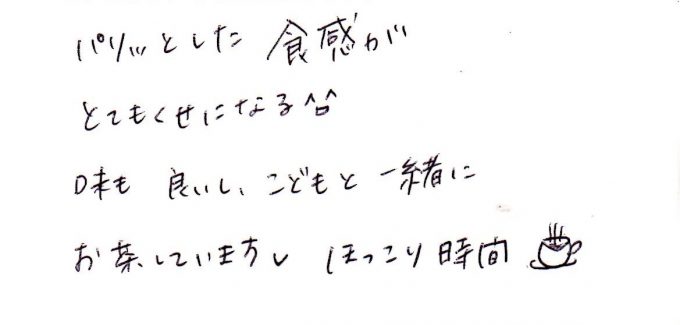 パリッとした 食感が
とてもくせになる^^
味も 良いし、こどもと 一緒に
お茶しています ほっこり時間